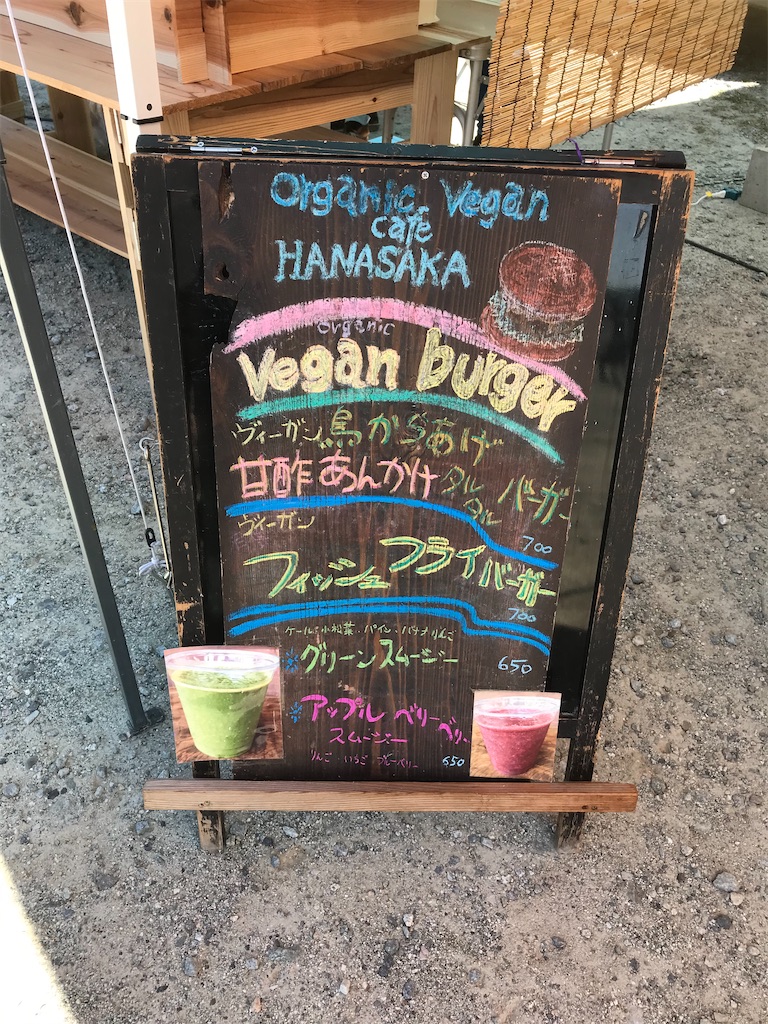 Organic Vegan
cafe
HANASAKA
organic
Vegan burger
ヴィーガン鳥からあげ
甘酢あんかけタルタルバーガー
700
ヴィーガン
フィッシュフライバーガー
700
ケール・小松菜・パイン・バナナりんご
グリーンスムージー 650
アップルベリーベリー
スムージー
りんご・いちご・ブルーベリー 650